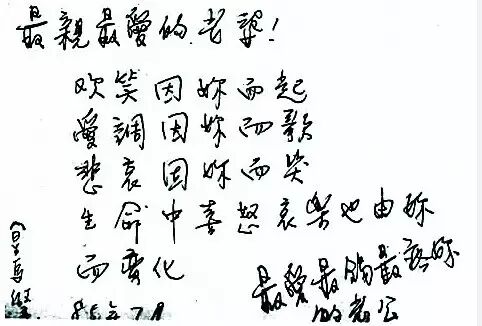 最親最愛的老婆!
欢笑因妳而起
愛調因妳而歌
悲哀因妳而哭
生命中喜怒哀樂也由妳
而變化
最愛最錫最疼妳
的老公
86年7月